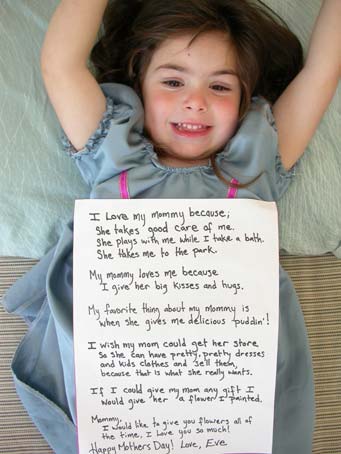 I Love my mommy because;
She takes good care of me.
She plays with me while I take a bath.
She takes me to the park.
My mommy loves me because
I give her big kisses and hugs.
My favorite thing about my mommy is
when she gives me delicious 'puddin'!
I wish my mom could get her store
so she can have pretty, pretty dresses
and kids clothes and sell them,
because that is what she really wants.
If I could give my mom any gift I
would give her a flower I painted.
Mommy,
I would like to give you flowers all
of the time, I Love you so much!
Happy Mothers Day! Love, Eve